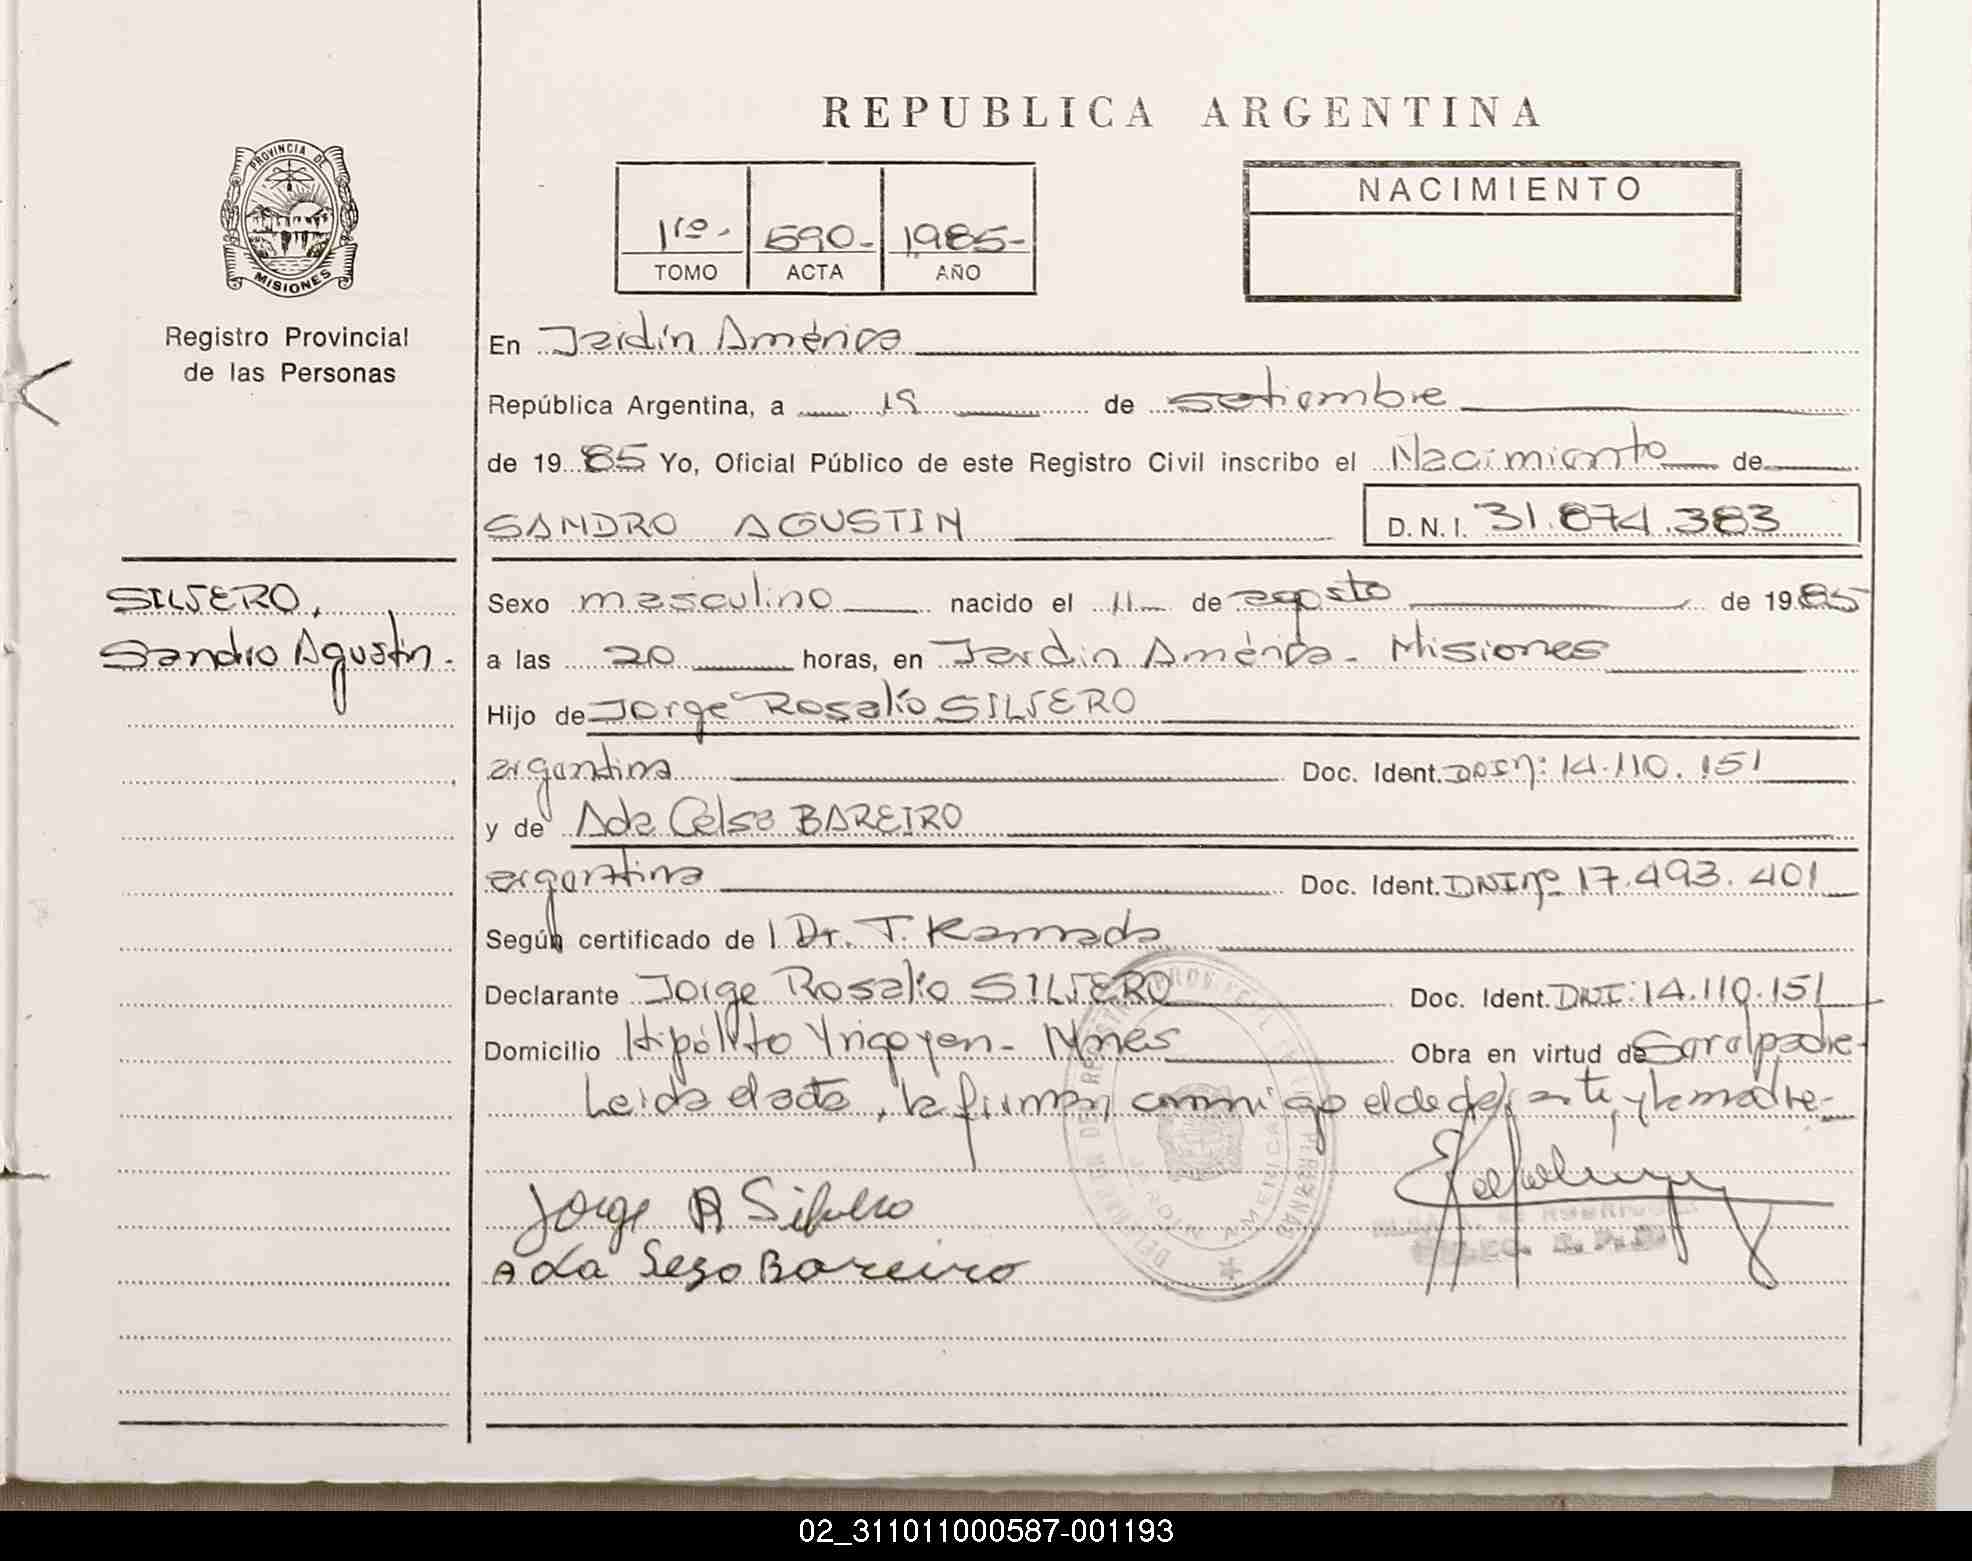 REPUBLICA ARGENTINA
PROVINCIA DE
MISIONES
Registro Provincial
de las Personas
1ro.- 590- 1985-
TOMO ACTA AÑO
NACIMIENTO
En Jardín América
República Argentina, a 19 de setiembre
de 1985 Yo, Oficial Público de este Registro Civil inscribo el Nacimiento de
SANDRO AGUSTIN D.N.I. 31.874.383
SILVERO,
Sandro Agustín.-
Sexo masculino nacido el 11 de agosto de 1985
a las 20 horas, en Jardin América - Misiones
Hijo de Jorge Rosalío SILVERO
argentina Doc. Ident. DNI nº: 14.110.151
y de Ada Celsa BAREIRO
argentina Doc. Ident. DNI nº 17.493.401
Según certificado de Dr. T. Kamada
Declarante Jorge Rosalio SILVERO Doc. Ident. DNI: 14.110.151
Domicilio Hipólito Yrigoyen - Mnes Obra en virtud de Ser el padre-
Leida el acta, la firman conmigo el declarante, y la madre.-
Jorge R Silvero
Ada Selso Bareiro
JARDIN AMERICA
02_311011000587-001193